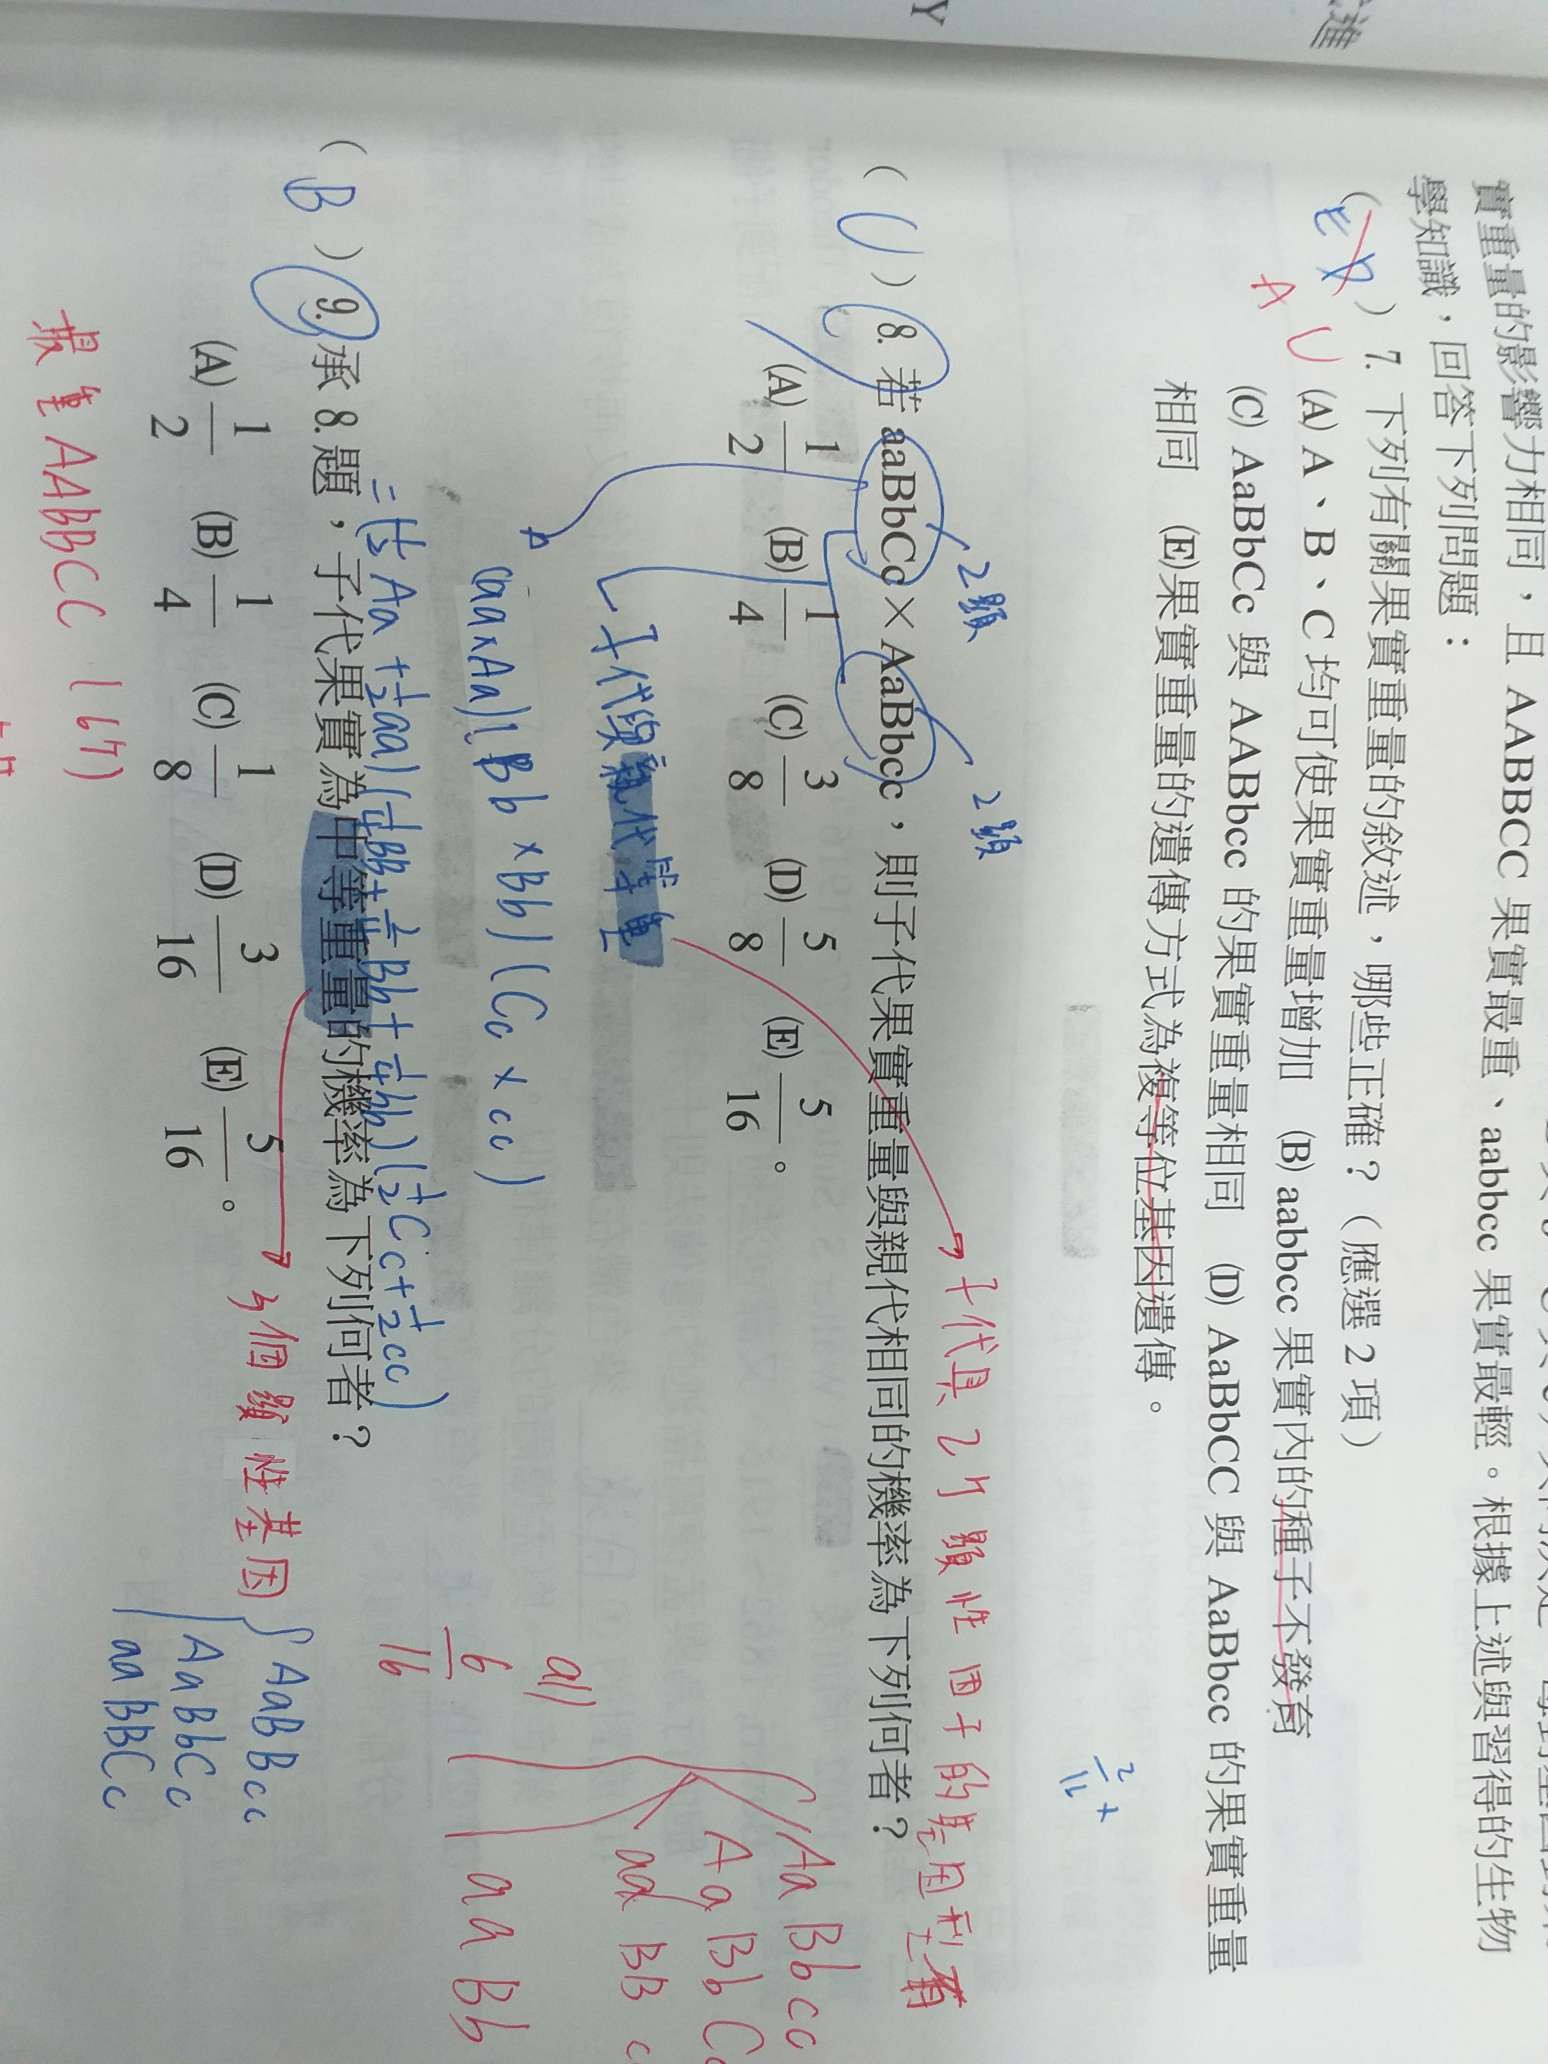 進
Y
實重量的影響力相同，且 AABBCC 果實最重、aabbcc 果實最輕。根據上述與習得的生物
學知識，回答下列問題：
( ) 7. 下列有關果實重量的敘述，哪些正確？（應選 2 項）
A C
(A) A、B、C 均可使果實重量增加 (B) aabbcc 果實內的種子不發育
(C) AaBbCc 與 AABbcc 的果實重量相同 (D) AaBbCC 與 AaBbcc 的果實重量
相同 (E)果實重量的遺傳方式為複等位基因遺傳。
2顯
2顯
子代具 2個 顯性因子的基因型有
( C ) 8. 若 aaBbCc × AaBbcc，則子代果實重量與親代相同的機率為下列何者？
(A) 1/2 (B) 1/4 (C) 3/8 (D) 5/8 (E) 5/16。
子代與親代
(aa×Aa)(Bb×Bb)(Cc×cc)
=(1/2 Aa + 1/2 aa)(1/4 BB + 1/2 Bb + 1/4 bb)(1/2 Cc + 1/2 cc)
AaBbcc
AaBbC
aaBB
aaBb
6/16
( B ) 9. 承 8.題，子代果實為中等重量的機率為下列何者？
3個顯性基因
AaBBcc
AaBbCc
aaBBCc
(A) 1/2 (B) 1/4 (C) 1/8 (D) 3/16 (E) 5/16。
最重 AABBCC (6個)